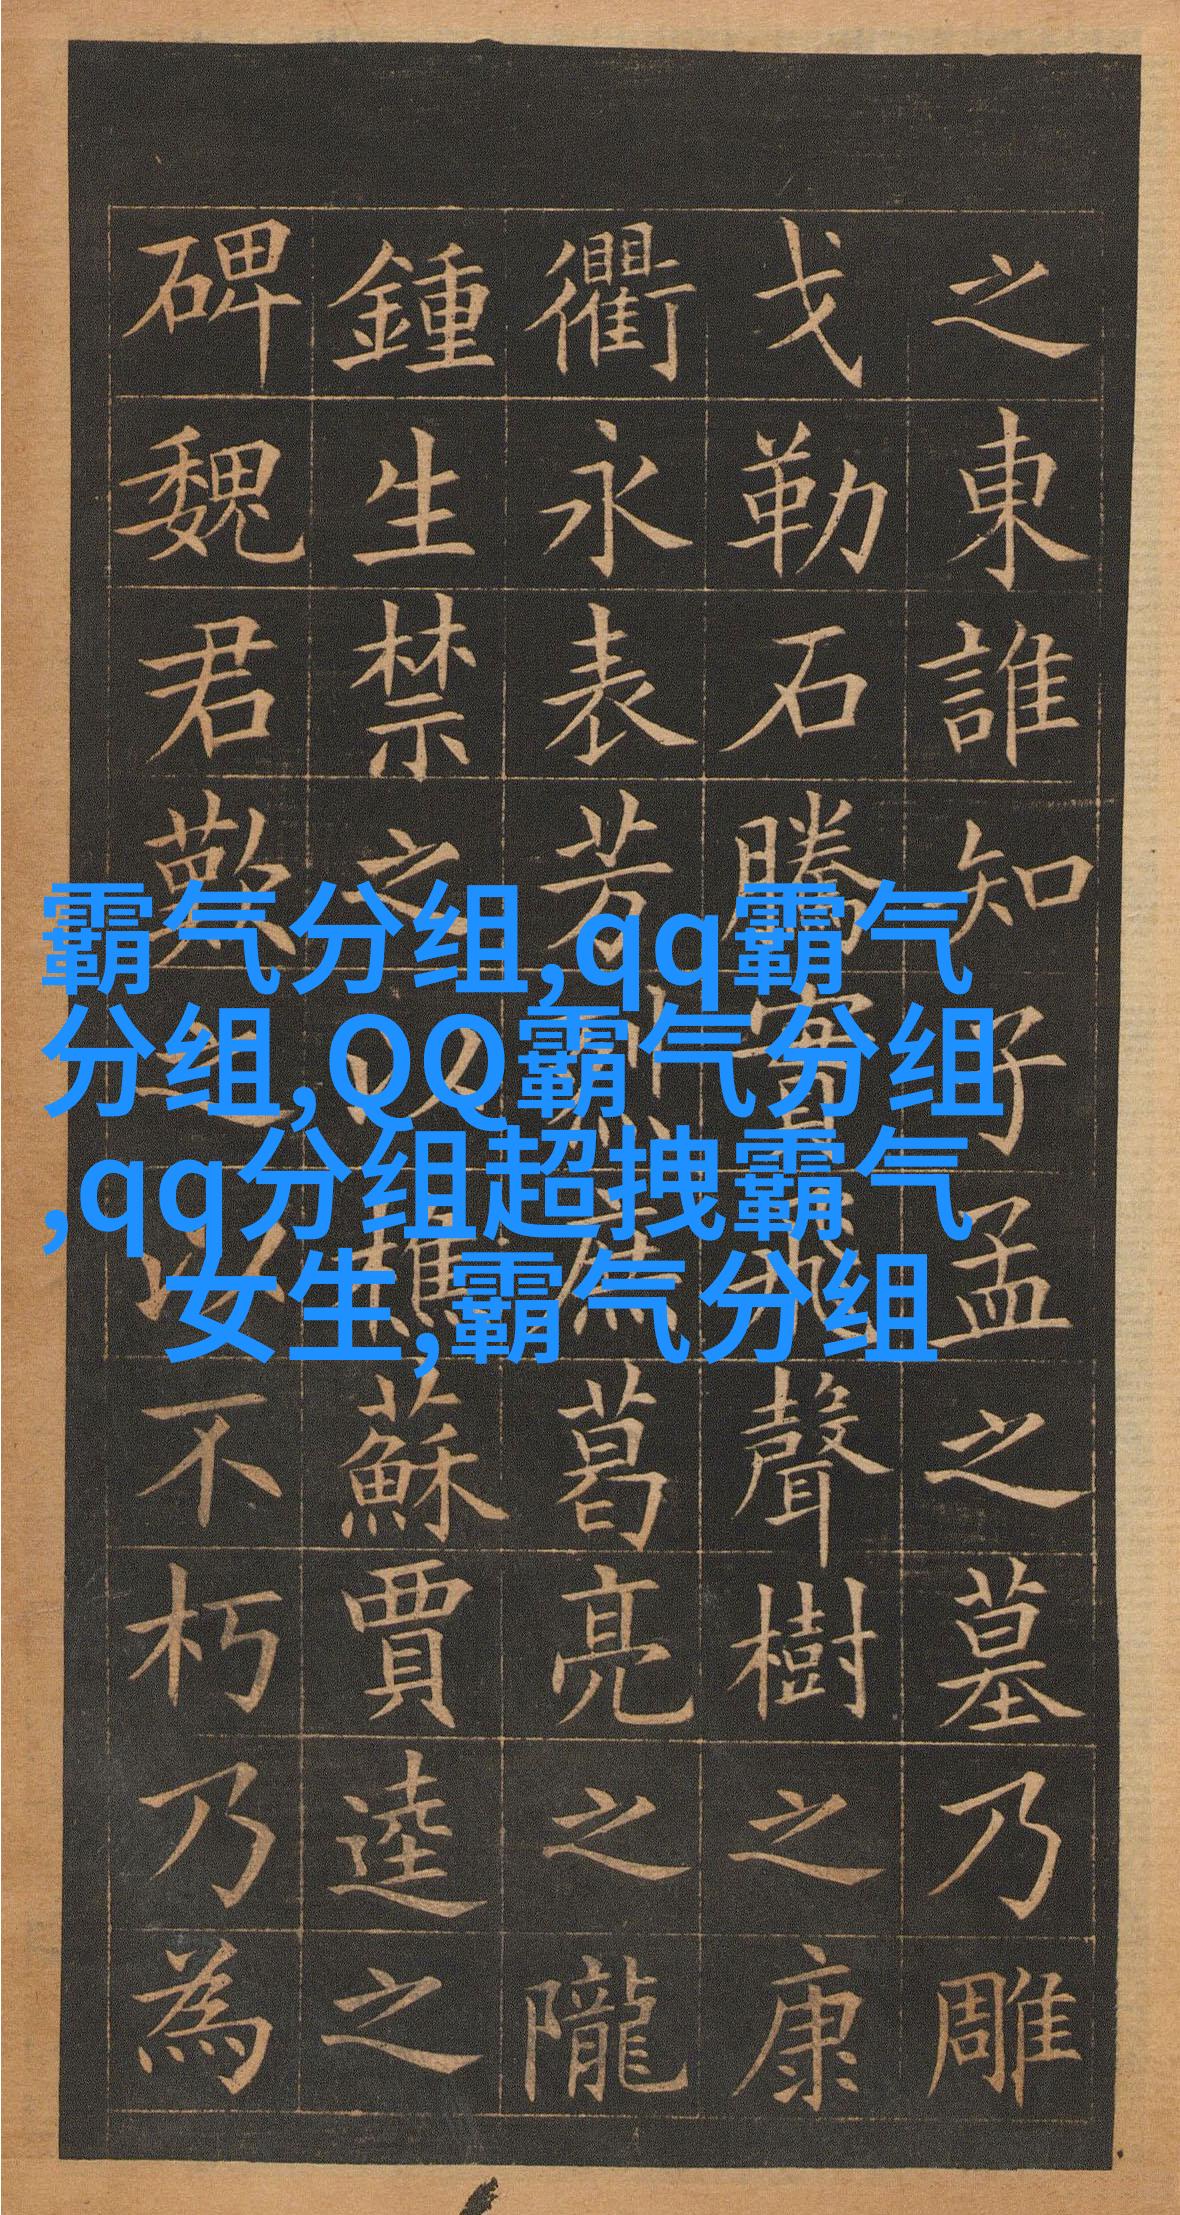 之東誰知子孟之墓乃雕
戈勒石騰實飛聲樹之康
衢永表芳烈庶葛亮之隴
鍾生禁之以樵蘇賈逵之
碑魏君歎之以不朽乃為
霸气分组,qq霸气
分组,QQ霸气分组
,qq分组超拽霸气
女生,霸气分组